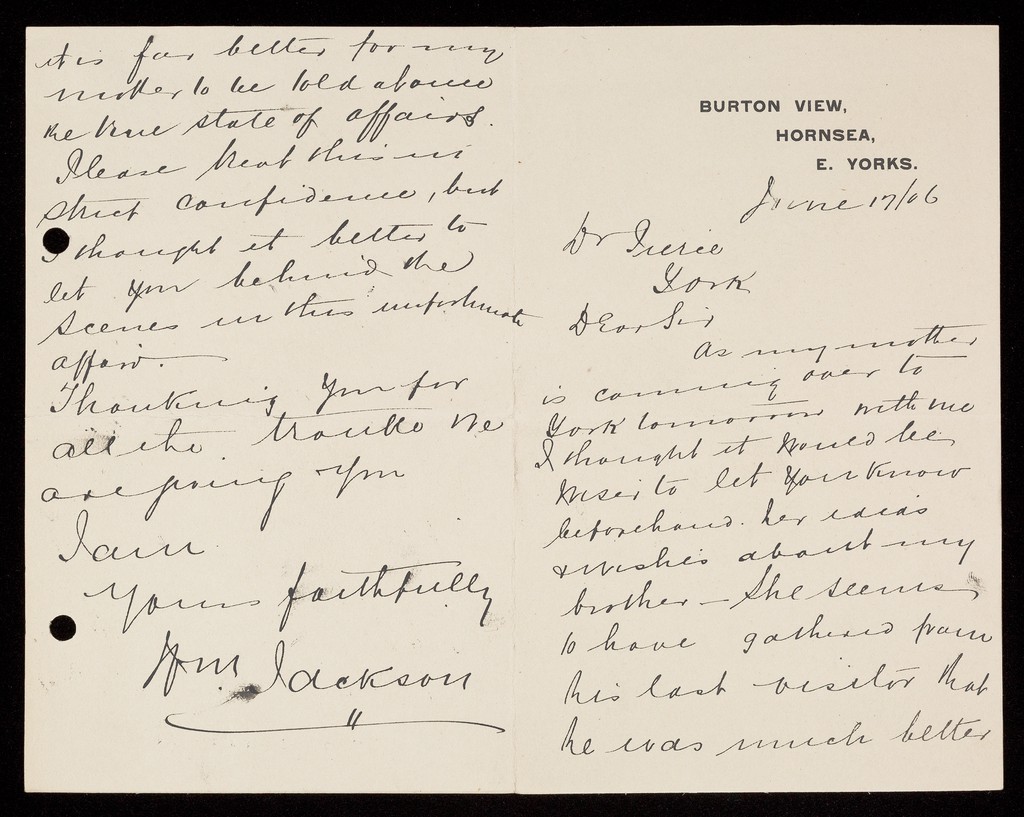 BURTON VIEW,
HORNSEA,
E. YORKS.
June 17/06
Dr Pierce
York
Dear Sir
As my mother
is coming over to
York tomorrow with me
I thought it would be
wiser to let you know
beforehand. her ideas
& wishes about my
brother – She seems
to have gathered from
his last visitor that
he was much better
it is far better for my
mother to be told above
the true state of affairs.
Please treat this in
strict confidence, but
I thought it better to
let you behind the
scenes in this unfortunate
affair.
Thanking you for
all the trouble we
are giving you
I am
Yours faithfully
Wm Jackson